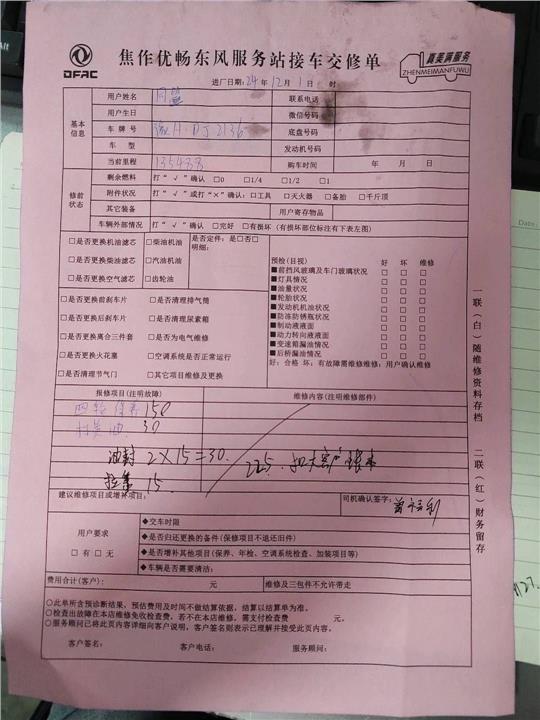 DFAC
焦作优畅东风服务站接车交修单
真美满服务
ZHENMEIMANFUWU
进厂日期:24年12月1日 时
基本信息
用户姓名 联系电话
用户生日 微信号码
车牌号 豫H·DJ2136 底盘号码
车型 发动机号码
当前里程 135438 购车时间 年 月 日
修前状态
剩余燃料 打“√”确认 □0 □1/4 □1/2 □1
附件状况 打“√”或打“×”确认:□工具 □灭火器 □备胎 □千斤顶
其它装备 用户寄存物品
车辆外部情况 打“√”确认 □完好 □有损坏(有损坏部位标注有下表左图)
□是否更换机油滤芯 □柴油机油 是否定件:是□否□
明细:
□是否更换柴油滤芯 □汽油机油
□是否更换空气滤芯 □齿轮油
□是否更换前刹车片 □是否清理排气筒
□是否更换后刹车片 □是否清理尿素箱
□是否更换离合三件套 □是否为电气维修
□是否更换火花塞 □空调系统是否正常运行
□是否清理节气门 □其它项目维修及更换
预检(目视) 好 坏 维修
■前挡风玻璃及车门玻璃状况 □ □ □
■灯具情况 □ □ □
■油量状况 □ □ □
■轮胎状况 □ □ □
■发动机机油状况 □ □ □
■防冻防锈瓶状况 □ □ □
■制动液液面 □ □ □
■动力转向液液面 □ □ □
■变速箱漏油情况 □ □ □
■后桥漏油情况 □ □ □
好:合格 坏:有故障需维修维修:用户确认维修
报修项目(注明故障) 维修内容(注明维修部件)
四轮保养 150
30
油封 2×15=30.
225.
15.
建议维修项目或增补项目: 司机确认签字:
用户要求
□有 □无
◆交车时限
◆是否归还更换的备件(保修项目不退还旧件)
◆是否增补其他项目(保养、年检、空调系统检查、加装项目等)
◆车辆是否需要清洁:
费用合计(客户): 元 维修及三包件不允许带走
○此单所含预诊断结果,预估费用及时间不做结算依据,结算以结算单为准。
○检查出故障在本店维修免收检查费,若不在本店维修,需支付检查费 元。
○服务顾问已将此页内容详细向客户说明,客户签名则表示已理解并接受此页内容。
客户签名: 客户电话: 服务顾问:
一联(白)随维修资料存档
二联(红)财务留存
Alt
Date